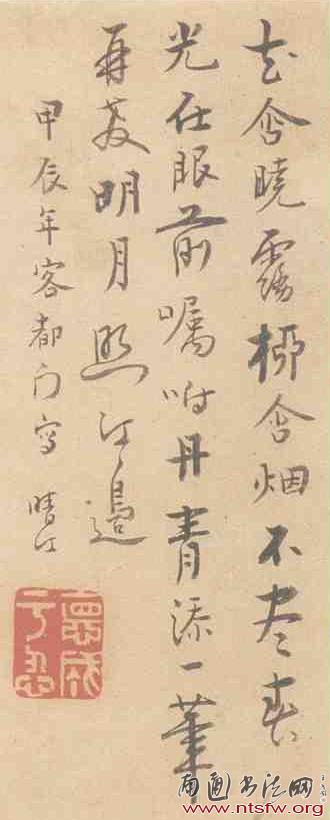 花含曉露柳含烟不尽春
光在眼前囑咐丹青添一筆
再教明月照江邊
甲辰年客都门写 晴江
南通书法网
www.ntsfw.org